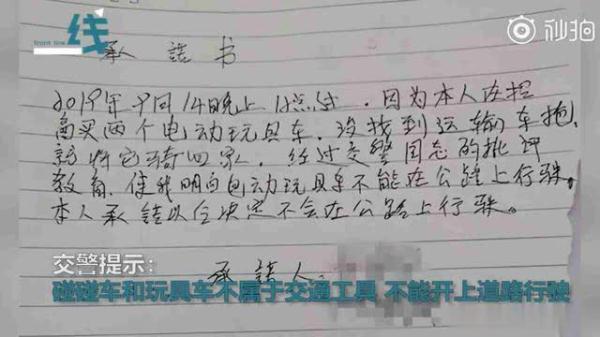 线
front line
秒拍
承諾书
2019年9月14晚上12点过，因为本人在
商买两个电动玩具车，没找到运输车拖，
就将它骑回家，经过交警同志的批评
教育，使我明白电动玩具车不能在公路上行驶。
本人承諾以后决定不会在公路上行驶。
承諾人：
交警提示：
碰碰车和玩具车不属于交通工具 不能开上道路行驶